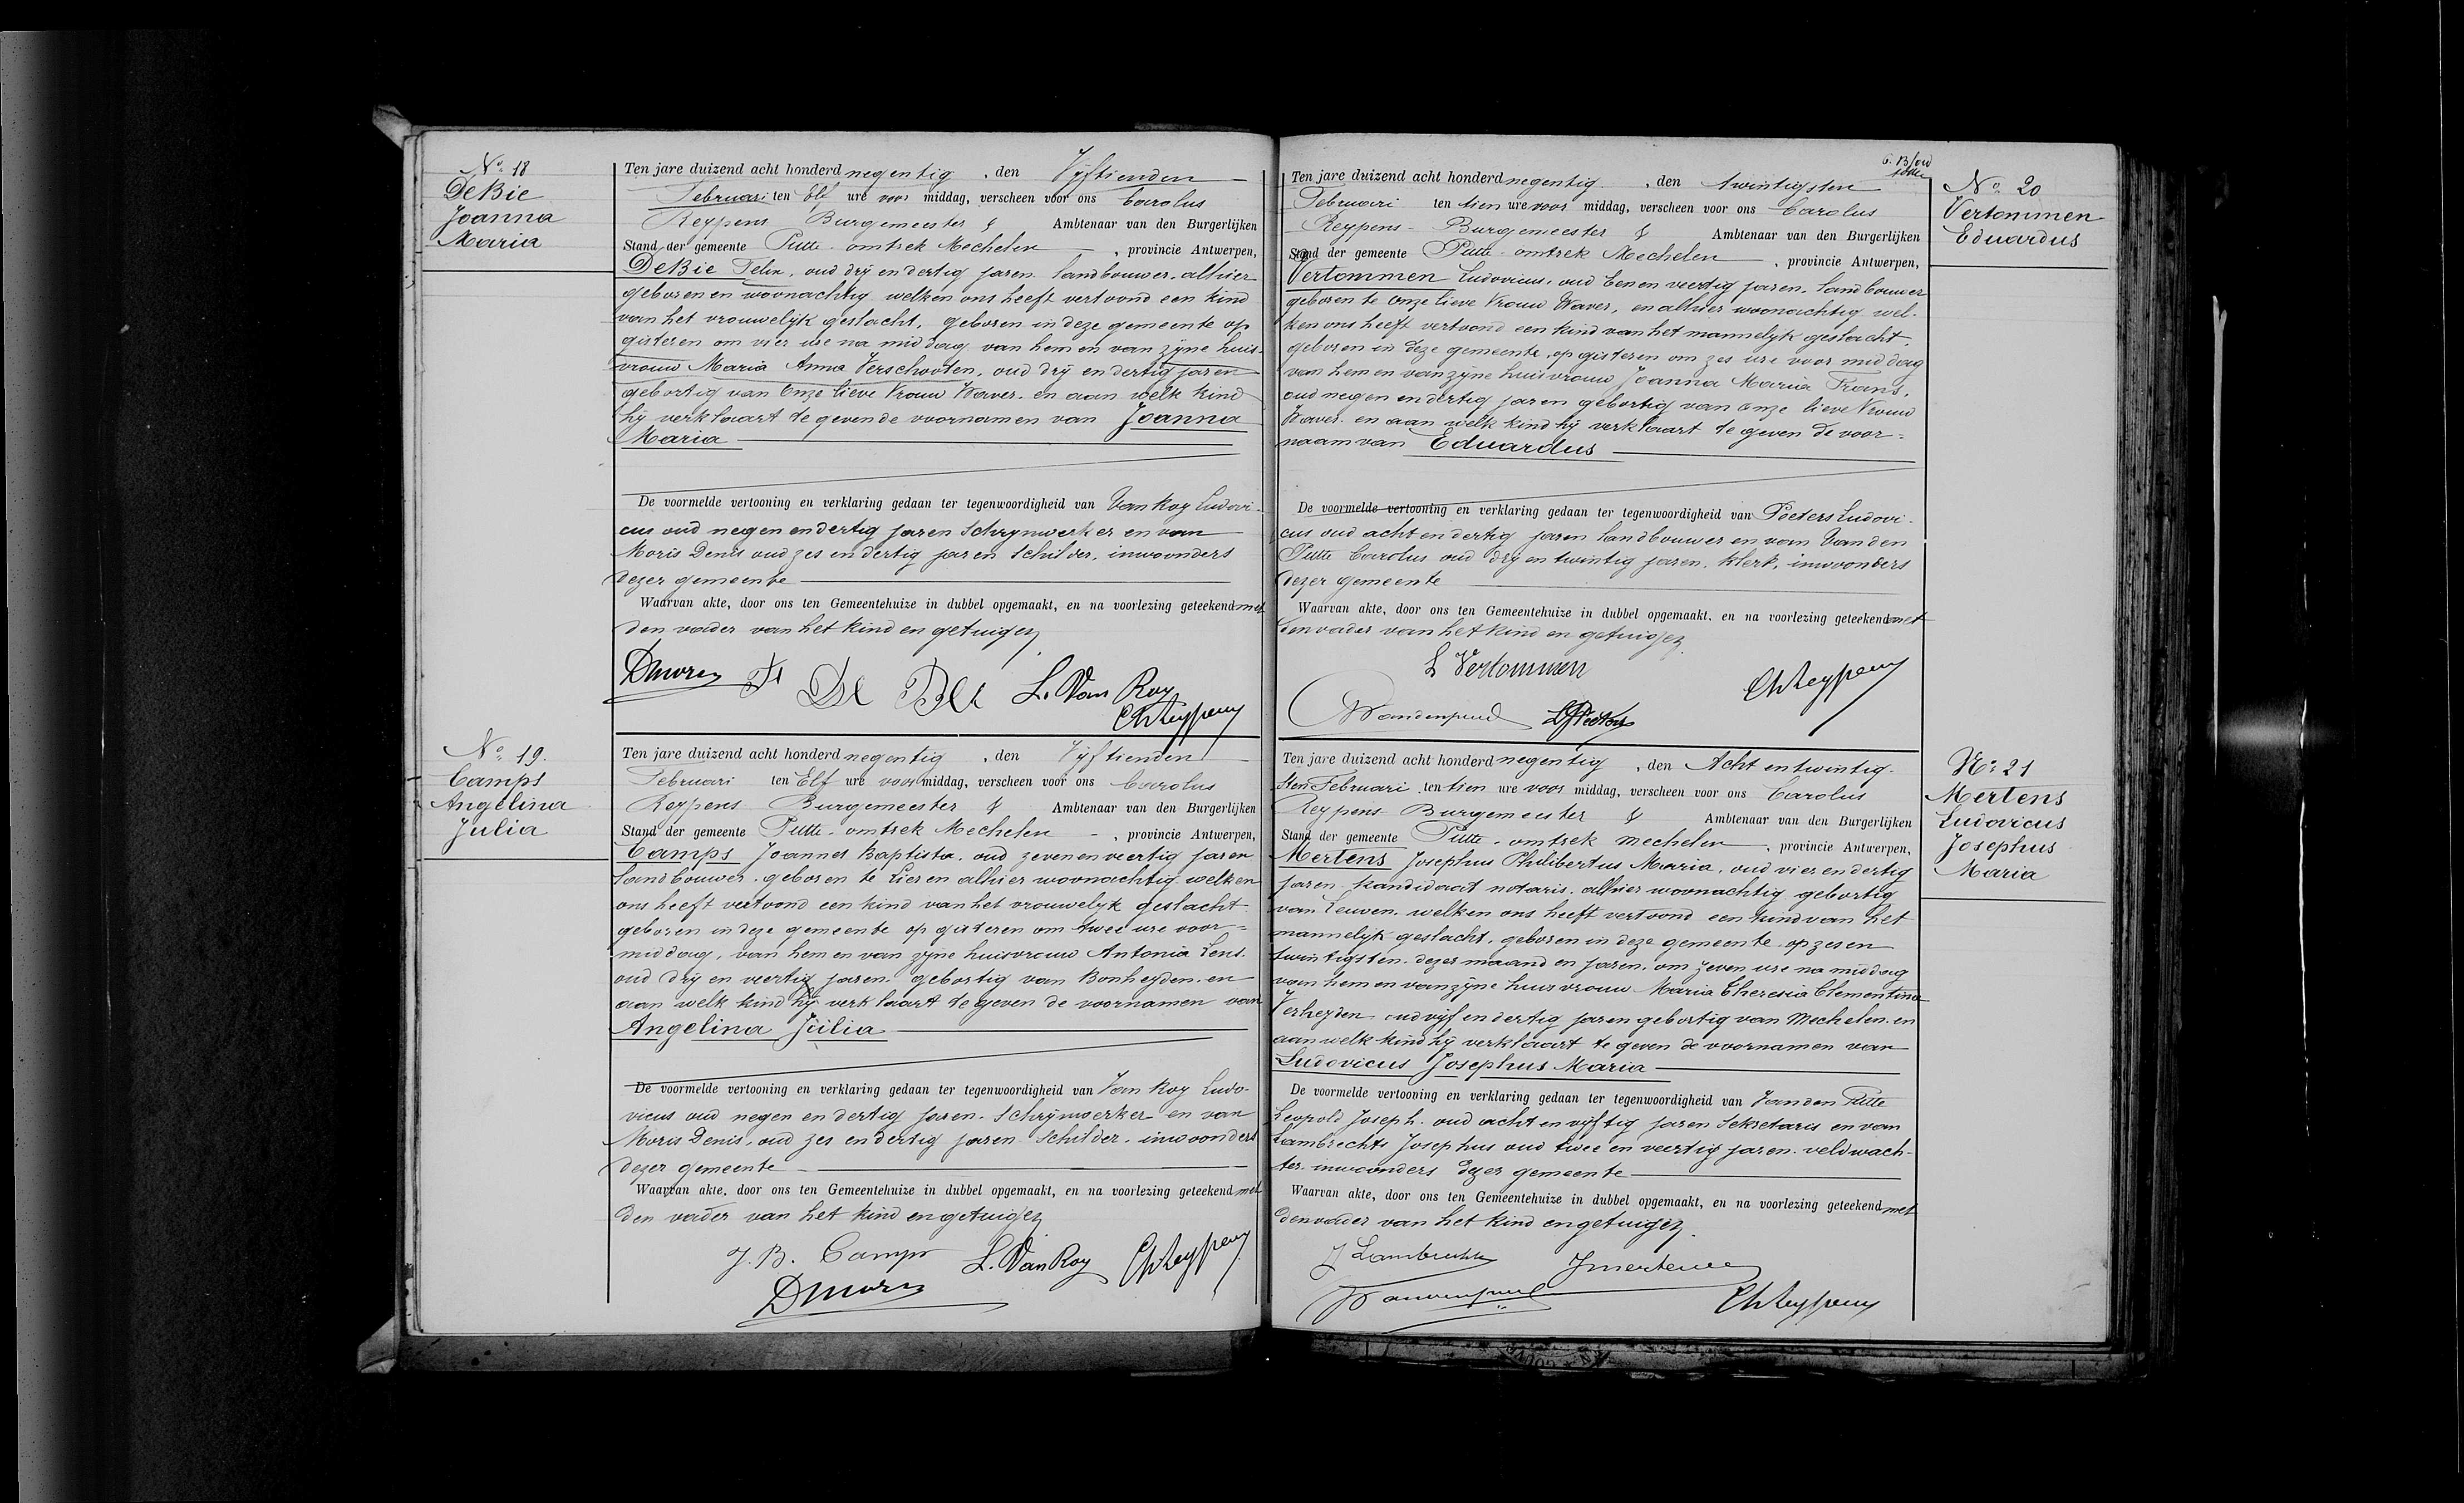 No 18
De Bie
Joanna
Maria
Ten jare duizend acht honderd negentig , den Vijftienden
Februari ten Elf ure voor middag, verscheen voor ons Carolus
Reypens Burgemeester & Ambtenaar van den Burgerlijken
Stand der gemeente Putte - omtrek Mechelen , provincie Antwerpen,
De Bie Felix, oud drij en dertig jaren landbouwer, alhier
geboren en woonachtig welken ons heeft vertoond een kind
van het vrouwelijk geslacht, geboren in deze gemeente op
gisteren om vier ure na middag van hem en van zijne huis-
vrouw Maria Anna Verschooten, oud drij en dertig jaren
gebortig van Onze lieve Vrouw Waver. en aan welk kind
hij verklaart te geven de voornamen van Joanna
Maria
De voormelde vertooning en verklaring gedaan ter tegenwoordigheid van Van Roy Ludovi-
cus oud negen en dertig jaren Schrynwerker en van
Moris Denis oud zes en dertig jaren Schilder, inwoonders
dezer gemeente
Waarvan akte, door ons ten Gemeentehuize in dubbel opgemaakt, en na voorlezing geteekend met
den vader van het kind en getuigen
DMoris F De Bie L. Van Roy
Ch Reypens
No 19.
Camps
Angelina
Julia
Ten jare duizend acht honderd negentig , den Vijftienden
Februari ten Elf ure voor middag, verscheen voor ons Carolus
Reypens Burgemeester & Ambtenaar van den Burgerlijken
Stand der gemeente Putte - omtrek Mechelen - , provincie Antwerpen,
Camps Joannes Baptista, oud zeven en veertig jaren
landbouwer, geboren te Lier en alhier woonachtig welken
ons heeft vertoond een kind van het vrouwelyk geslacht
geboren in deze gemeente op gisteren om twee ure voor-
middag, van hem en van zijne huisvrouw Antonia Lens
oud drij en veertig jaren gebortig van Bonheyden. en
aan welk kind hij verklaart te geven de voornamen van
Angelina Julia
De voormelde vertooning en verklaring gedaan ter tegenwoordigheid van Van Roy Ludo-
vicus oud negen en dertig jaren. Schrijnwerker en van
Moris Denis, oud zes en dertig jaren Schilder, inwoonders
dezer gemeente
Waarvan akte, door ons ten Gemeentehuize in dubbel opgemaakt, en na voorlezing geteekend met
den vader van het kind en getuigen
J. B. Camps L. Van Roy Ch Reypens
DMoris
Ten jare duizend acht honderd negentig , den twintigsten
Februari ten tien ure voor middag, verscheen voor ons Carolus
Reypens - Burgemeester & Ambtenaar van den Burgerlijken
Stand der gemeente Putte - omtrek Mechelen , provincie Antwerpen,
Vertommen Ludovicus, oud Een en veertig jaren, landbouwer
geboren te Onze lieve Vrouw Waver, en alhier woonachtig wel-
ken ons heeft vertoond een kind van het mannelyk geslacht,
geboren in deze gemeente, op gisteren om zes ure voor middag
van hem en van zijne huisvrouw Joanna Maria Frans,
oud negen en dertig jaren gebortig van onze lieve Vrouw
Waver. en aan welk kind hij verklaart te geven de voor-
naam van Eduardus
De voormelde vertooning en verklaring gedaan ter tegenwoordigheid van Peeters Ludovi-
cus oud acht en dertig jaren landbouwer en van Van den
Putte Carolus oud drij en twintig jaren, klerk, inwoonders
dezer gemeente
Waarvan akte, door ons ten Gemeentehuize in dubbel opgemaakt, en na voorlezing geteekend met
den vader van het kind en getuigen
L Vertommen
Ch Reypens
No 20
Vertommen
Eduardus
Ten jare duizend acht honderd negentig , den Acht en twintig-
sten Februari ten tien ure voor middag, verscheen voor ons Carolus
Reypens Burgemeester & Ambtenaar van den Burgerlijken
Stand der gemeente Putte - omtrek mechelen , provincie Antwerpen,
Mertens Josephus Philibertus Maria, oud vier en dertig
jaren kandidaat notaris, alhier woonachtig gebortig
van Leuven. welken ons heeft vertoond een kind van het
mannelijk geslacht, geboren in deze gemeente op zes en
twintigsten dezer maand en jaren, om zeven ure na middag
van hem en van zijne huisvrouw Maria Theresia Clementina
Verheyden oud vijf en dertig jaren gebortig van Mechelen. en
aan welk kind hij verklaart te geven de voornamen van
Ludovicus Josephus Maria
De voormelde vertooning en verklaring gedaan ter tegenwoordigheid van Van den Putte
Leopold Joseph, oud acht en vijftig jaren Sekretaris en van
Lambrechts Josephus oud twee en veertig jaren. veldwach-
ter. inwoonders dezer gemeente
Waarvan akte, door ons ten Gemeentehuize in dubbel opgemaakt, en na voorlezing geteekend met
den vader van het kind en getuigen
J Lambrechts JMertens
Ch Reypens
No 21
Mertens
Ludovicus
Josephus
Maria